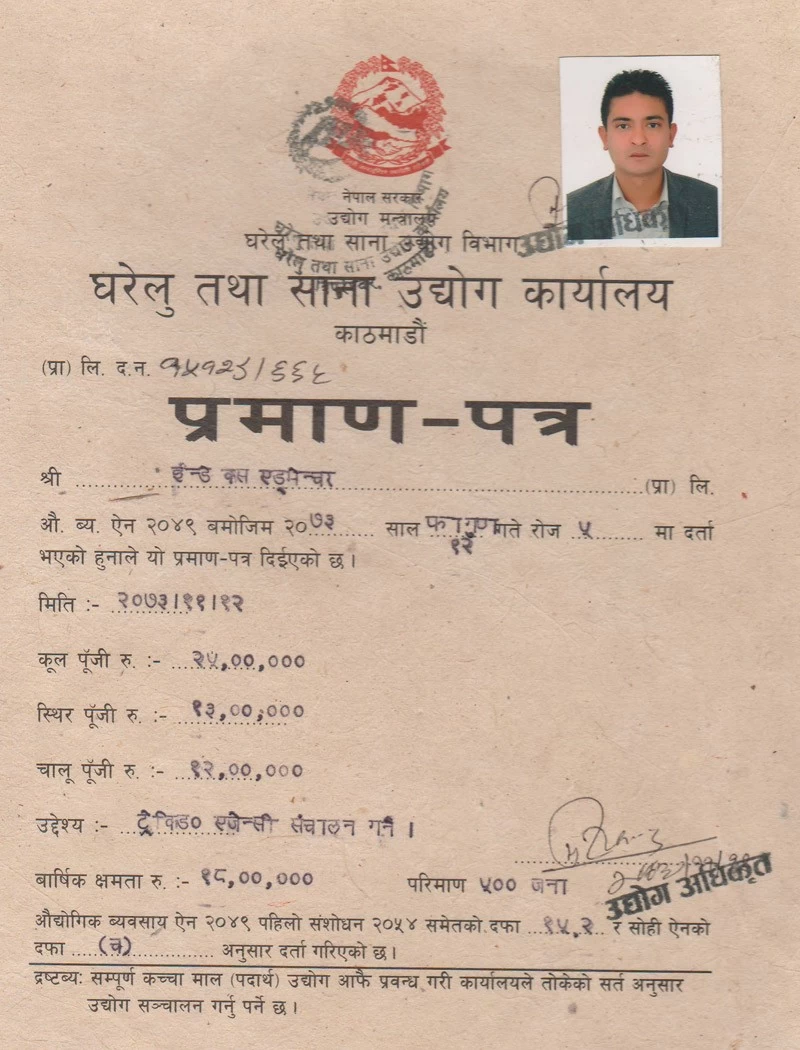 नेपाल सरकार
उद्योग मन्त्रालय
घरेलु तथा साना उद्योग विभाग
घरेलु तथा साना उद्योग कार्यालय
काठमाडौं
(प्रा) लि. द.न. १५१२८/६६६
प्रमाण-पत्र
श्री ईन्डेक्स एड्भेन्चर (प्रा) लि.
औ. ब्य. ऐन २०४९ बमोजिम २०७३ साल फागुण १२ गते रोज ५ मा दर्ता
भएको हुनाले यो प्रमाण-पत्र दिईएको छ ।
मिति :- २०७३।११।१२
कूल पूँजी रु. :- २५,००,०००
स्थिर पूँजी रु. :- १३,००,०००
चालू पूँजी रु. :- १२,००,०००
उद्देश्य :- ट्रेकिङ एजेन्सी संचालन गर्ने ।
बार्षिक क्षमता रु. :- १८,००,००० परिमाण ५०० जना
उद्योग अधिकृत
औद्योगिक ब्यवसाय ऐन २०४९ पहिलो संशोधन २०५४ समेतको दफा १५.२ र सोही ऐनको
दफा (च) अनुसार दर्ता गरिएको छ ।
द्रष्टब्य: सम्पूर्ण कच्चा माल (पदार्थ) उद्योग आफै प्रवन्ध गरी कार्यालयले तोकेको सर्त अनुसार
उद्योग सञ्चालन गर्नु पर्ने छ ।